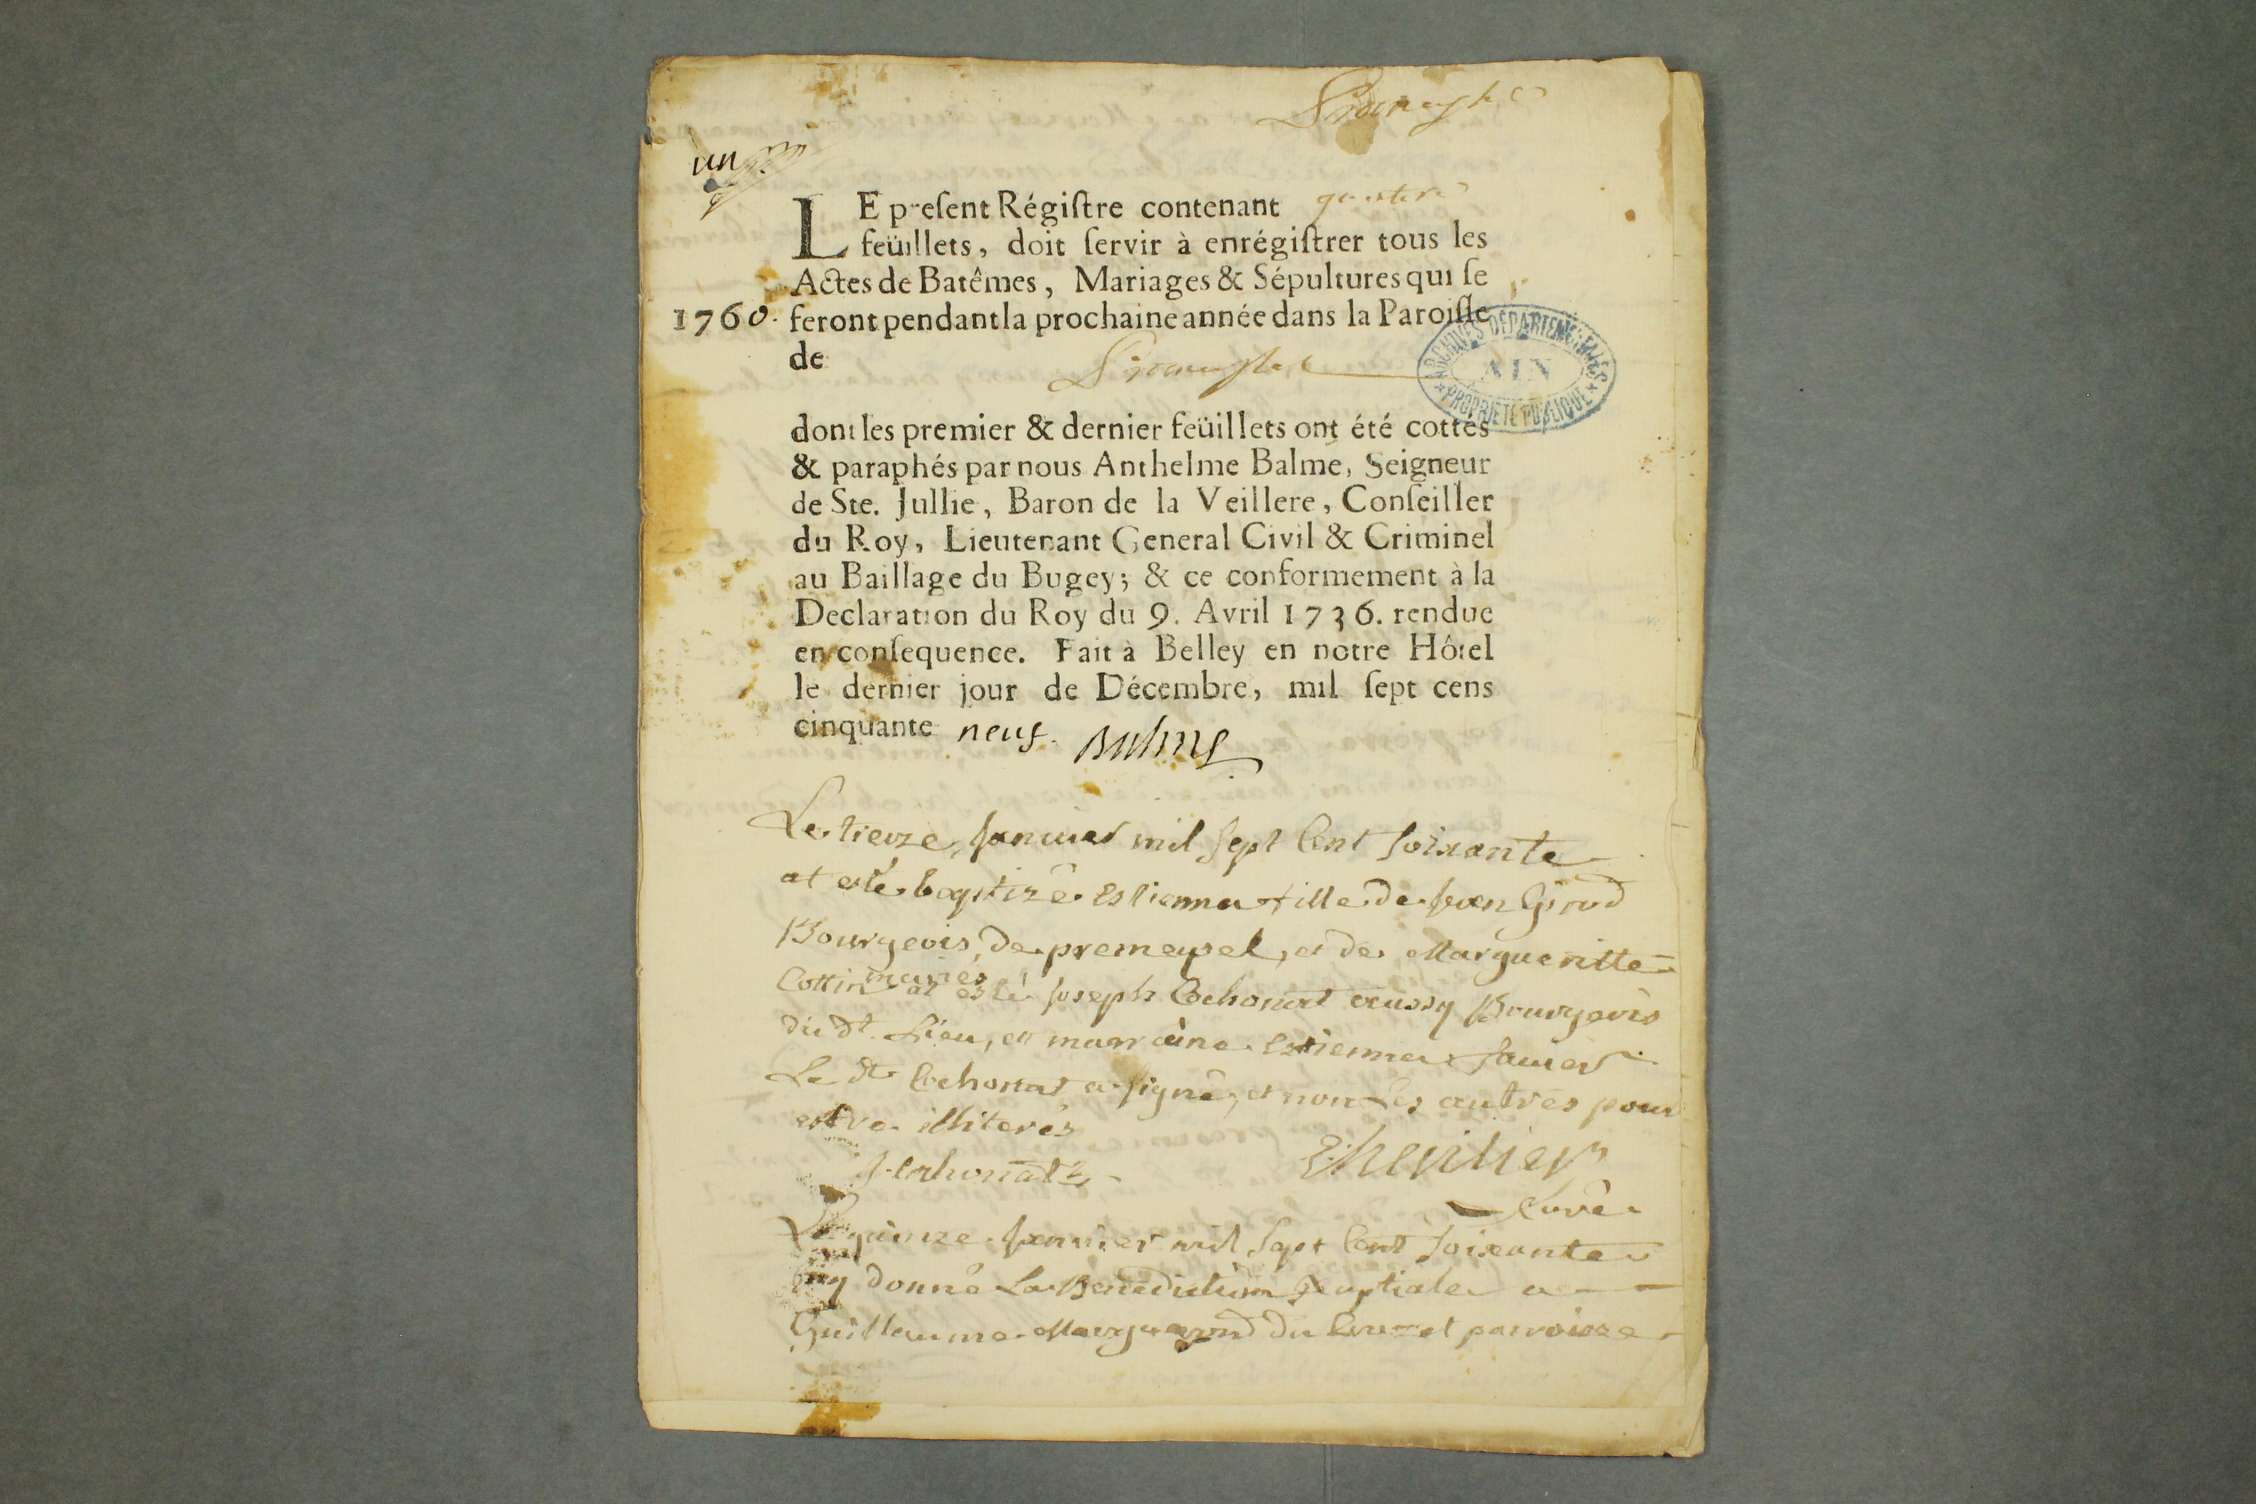 un
LE present Régistre contenant quatre
feüillets, doit servir à enrégistrer tous les
Actes de Batêmes, Mariages & Sépultures qui se
1760. feront pendant la prochaine année dans la Paroisse
de
ARCHIVES DÉPARTEMENTALES
AIN
PROPRIÉTÉ PUBLIQUE
dont les premier & dernier feüillets ont été cottés
& paraphés par nous Anthelme Balme, Seigneur
de Ste. Jullie, Baron de la Veillere, Conseiller
du Roy, Lieutenant General Civil & Criminel
au Baillage du Bugey; & ce conformement à la
Declaration du Roy du 9. Avril 1736. rendue
en consequence. Fait à Belley en notre Hôtel
le dernier jour de Décembre, mil sept cens
cinquante neuf. Balme
Le treize Janvier mil sept Cent soixante
at esté baptizé Estienna fille de Jean Girod
Bourgeois de premeysel, et de Margueritte
Cottin mariés at esté Joseph Cochonat aussy Bourgeois
du dt. Lieu, et marraine Estienna Janier
Le dt Cochonat a signé, et non Les autres pour
estre illiterés
J. Cochonat
Curé
Le quinze Janvier mil sept Cent soixante
ay donné La Benediction Nuptiale a
Guillaume du Cruzet parroisse